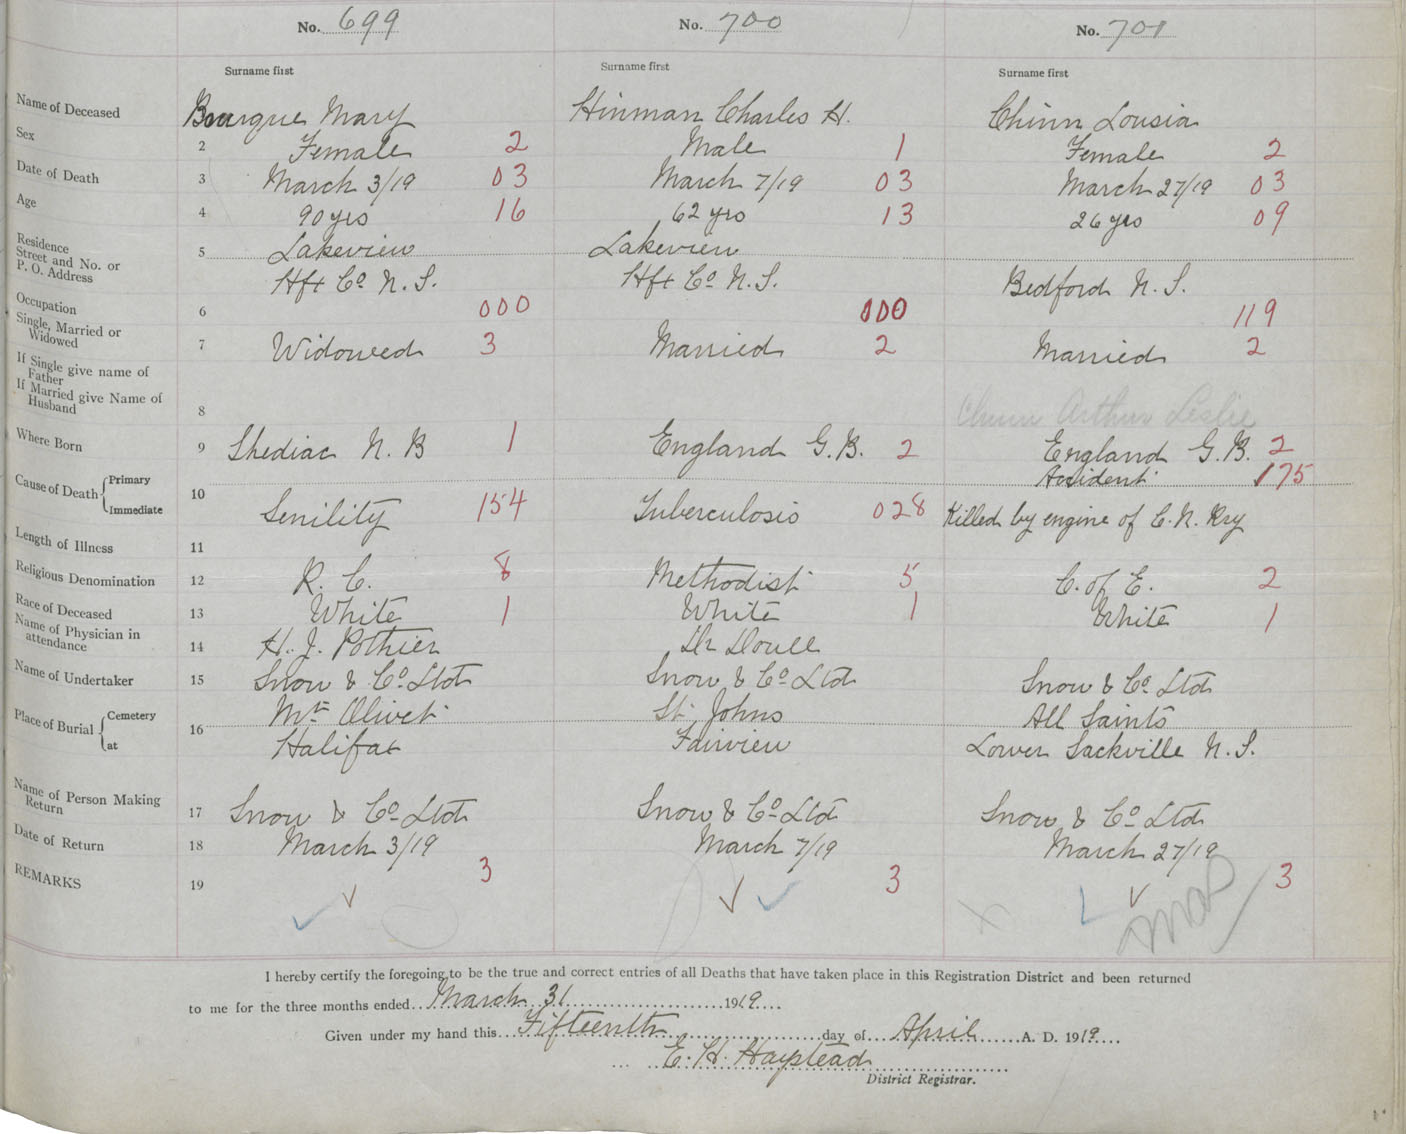 No. 699 No. 700 No. 701
Surname first Surname first Surname first
Name of Deceased Bourgue Mary Hinman Charles H. Chinn Lousia
Sex 2 Female 2 Male 1 Female 2
Date of Death 3 March 3/19 03 March 7/19 03 March 27/19 03
Age 4 90 yrs 16 62 yrs 13 26 yrs 09
Residence
Street and No. or 5 Lakeview Lakeview
P. O. Address Hfx Co N. S. Hfx Co N. S. Bedford N. S.
Occupation 6 000 000 119
Single, Married or
Widowed 7 Widowed 3 Married 2 Married 2
If Single give name of
Father
If Married give Name of
Husband 8 Chinn Arthur Leslie
Where Born 9 Shediac N. B 1 England G. B. 2 England G. B. 2
Cause of Death Primary Accident 175
Immediate 10 Senility 154 Tuberculosis 028 Killed by engine of C. N. Rry
Length of Illness 11
Religious Denomination 12 R. C. 8 Methodist 5 C. of E. 2
Race of Deceased 13 White 1 White 1 White 1
Name of Physician in
attendance 14 H. J. Pothier Dr Doull
Name of Undertaker 15 Snow & Co Ltd Snow & Co Ltd Snow & Co Ltd
Place of Burial Cemetery 16 Mt Olivet St Johns All Saints
at Halifax Fairview Lower Sackville N. S.
Name of Person Making
Return 17 Snow & Co Ltd Snow & Co Ltd Snow & Co Ltd
Date of Return 18 March 3/19 March 7/19 March 27/19
REMARKS 19 3 3 3
I hereby certify the foregoing to be the true and correct entries of all Deaths that have taken place in this Registration District and been returned
to me for the three months ended March 31 1919
Given under my hand this Fifteenth day of April A. D. 1919
E. H. Hayslead
District Registrar.